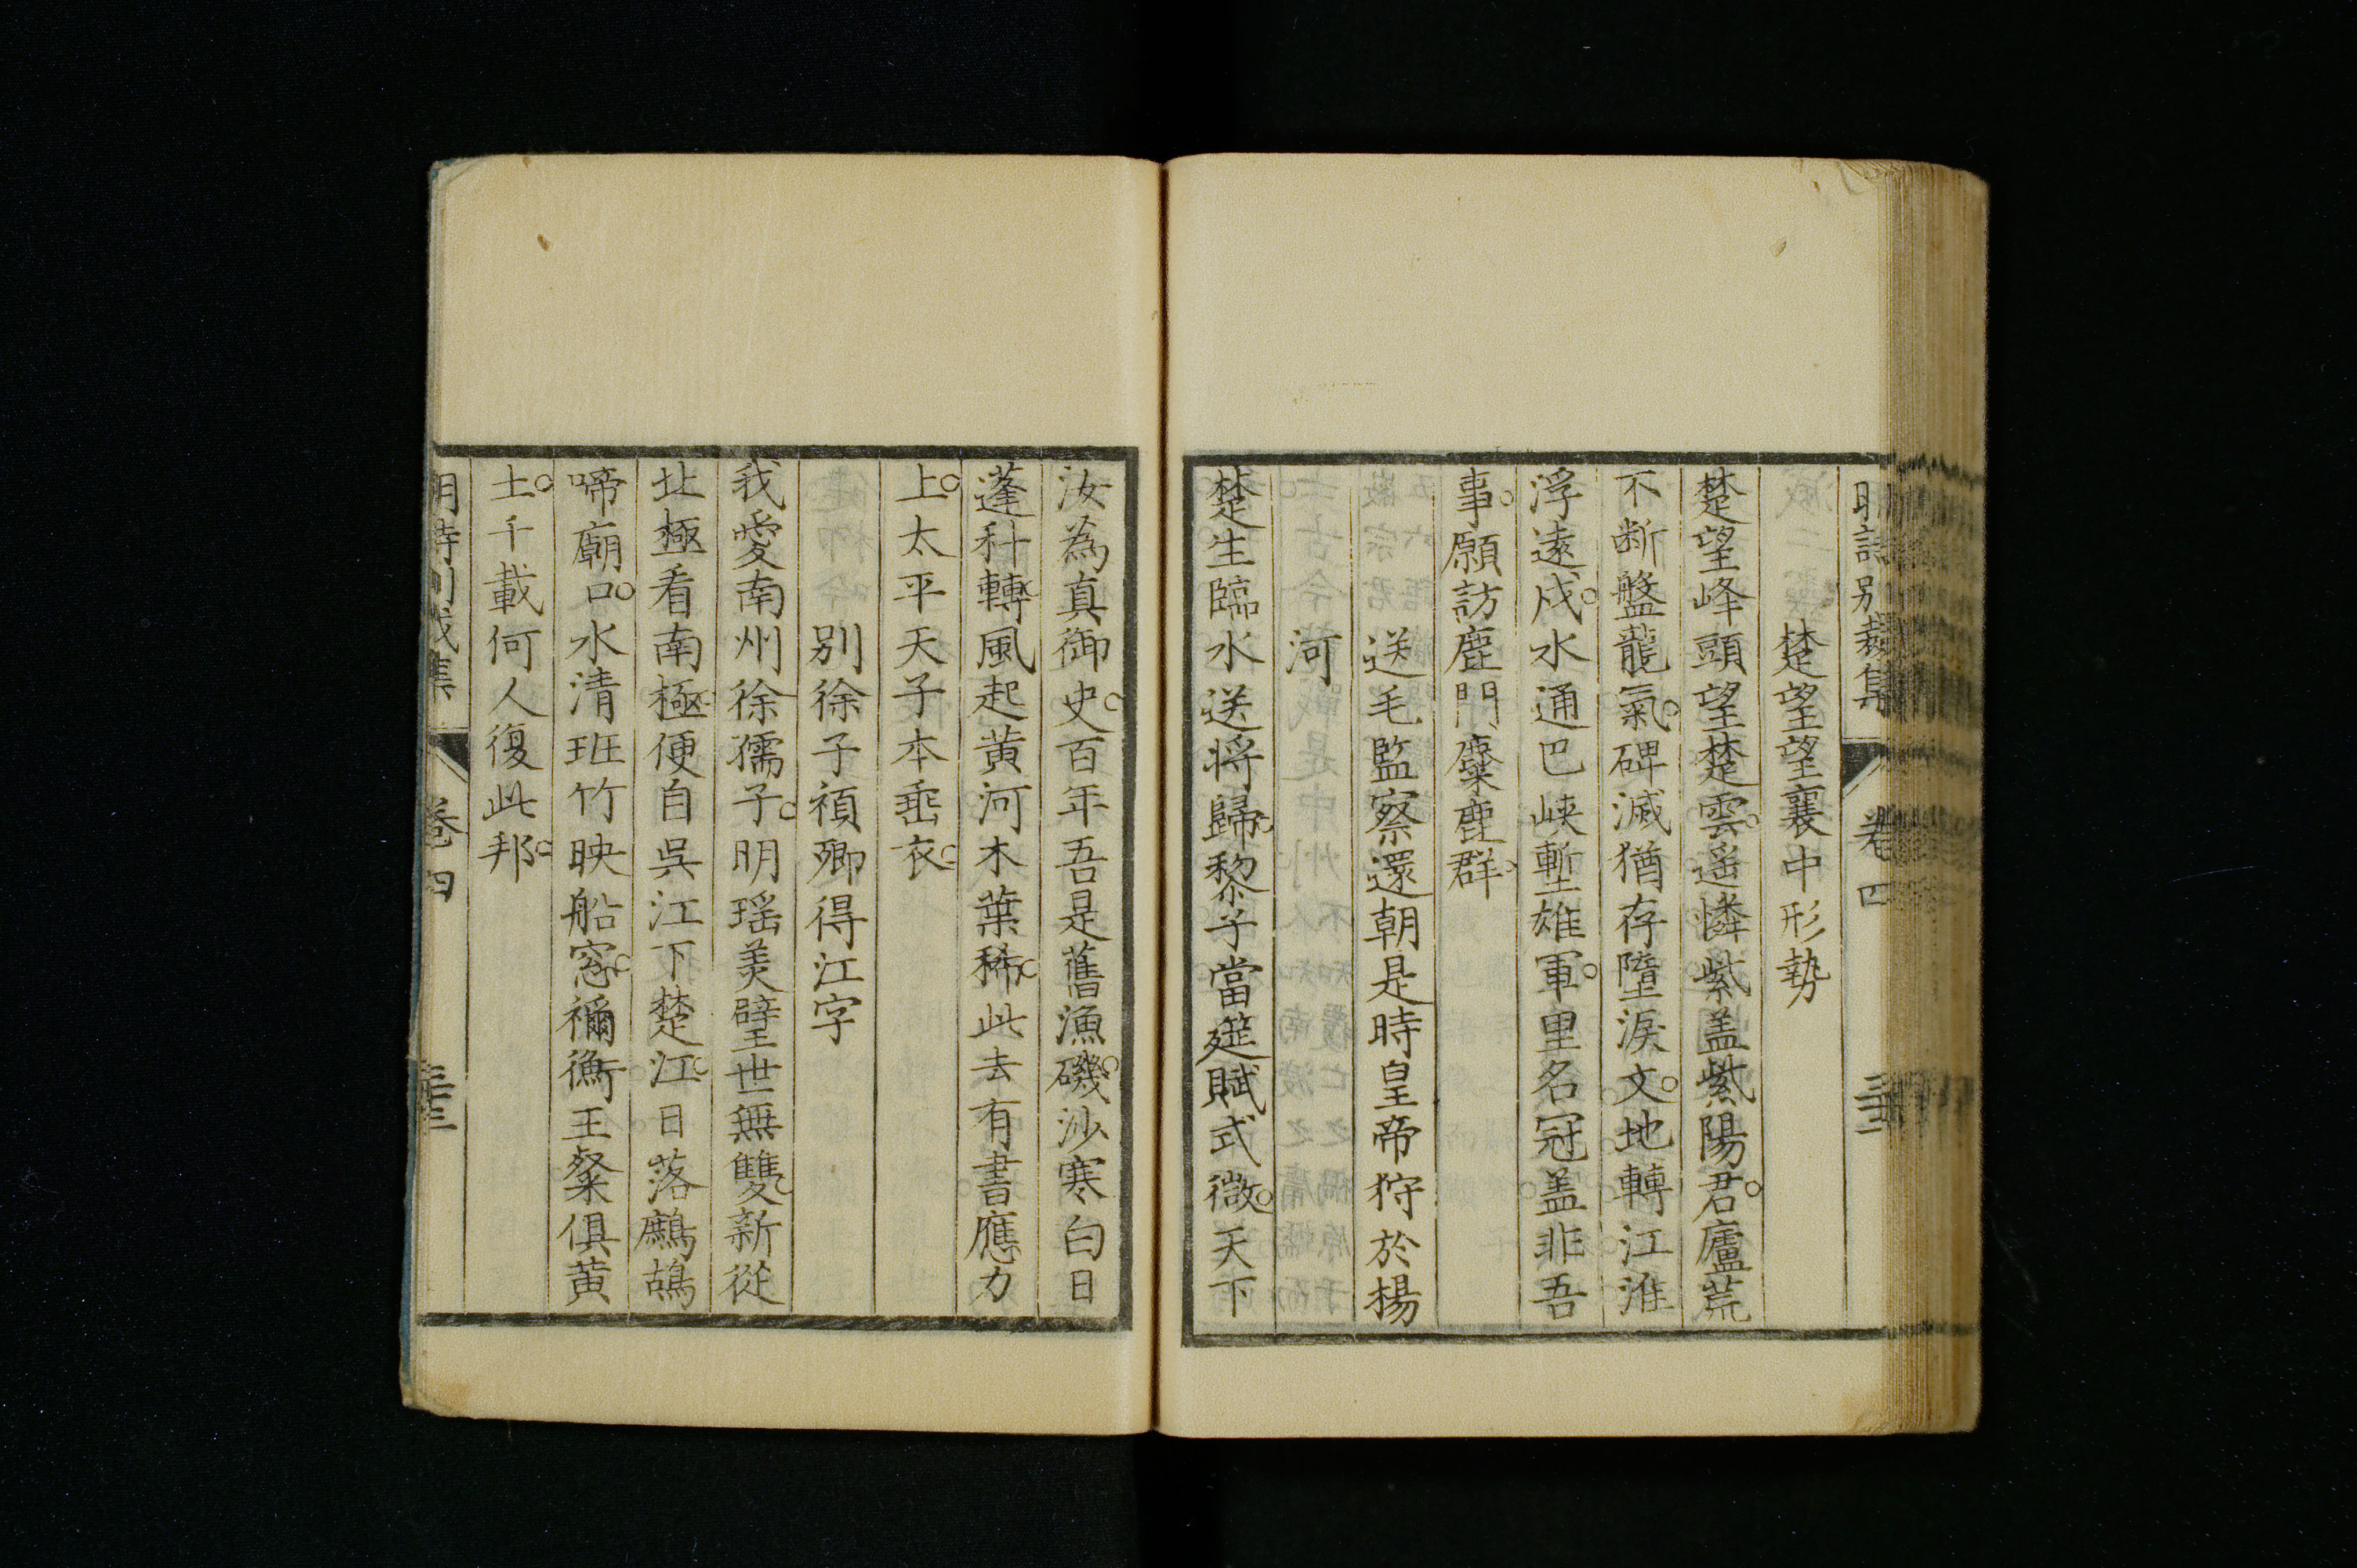 明詩別裁集 卷四 三十三
楚望望襄中形勢
楚望峰頭望楚雲遥憐紫盖紫陽君廬荒
不断盤龍氣碑滅猶存墮淚文地轉江淮
浮遠戍水通巴峡塹雄軍里名冠盖非吾
事願訪鹿門麋鹿群
送毛監察還朝是時皇帝狩於楊
河
楚生臨水送将歸黎子當筵賦式微天下
汝為真御史百年吾是舊漁磯沙寒白日
蓬科轉風起黄河木葉稀此去有書應力
上太平天子本垂衣
别徐子禎卿得江字
我愛南州徐孺子明瑶美璧世無雙新從
北極看南極便自吳江下楚江日落鷓鴣
啼廟口水清班竹映船窓禰衡王粲俱黄
土千載何人復此邦
明詩別裁集 卷四 三十三